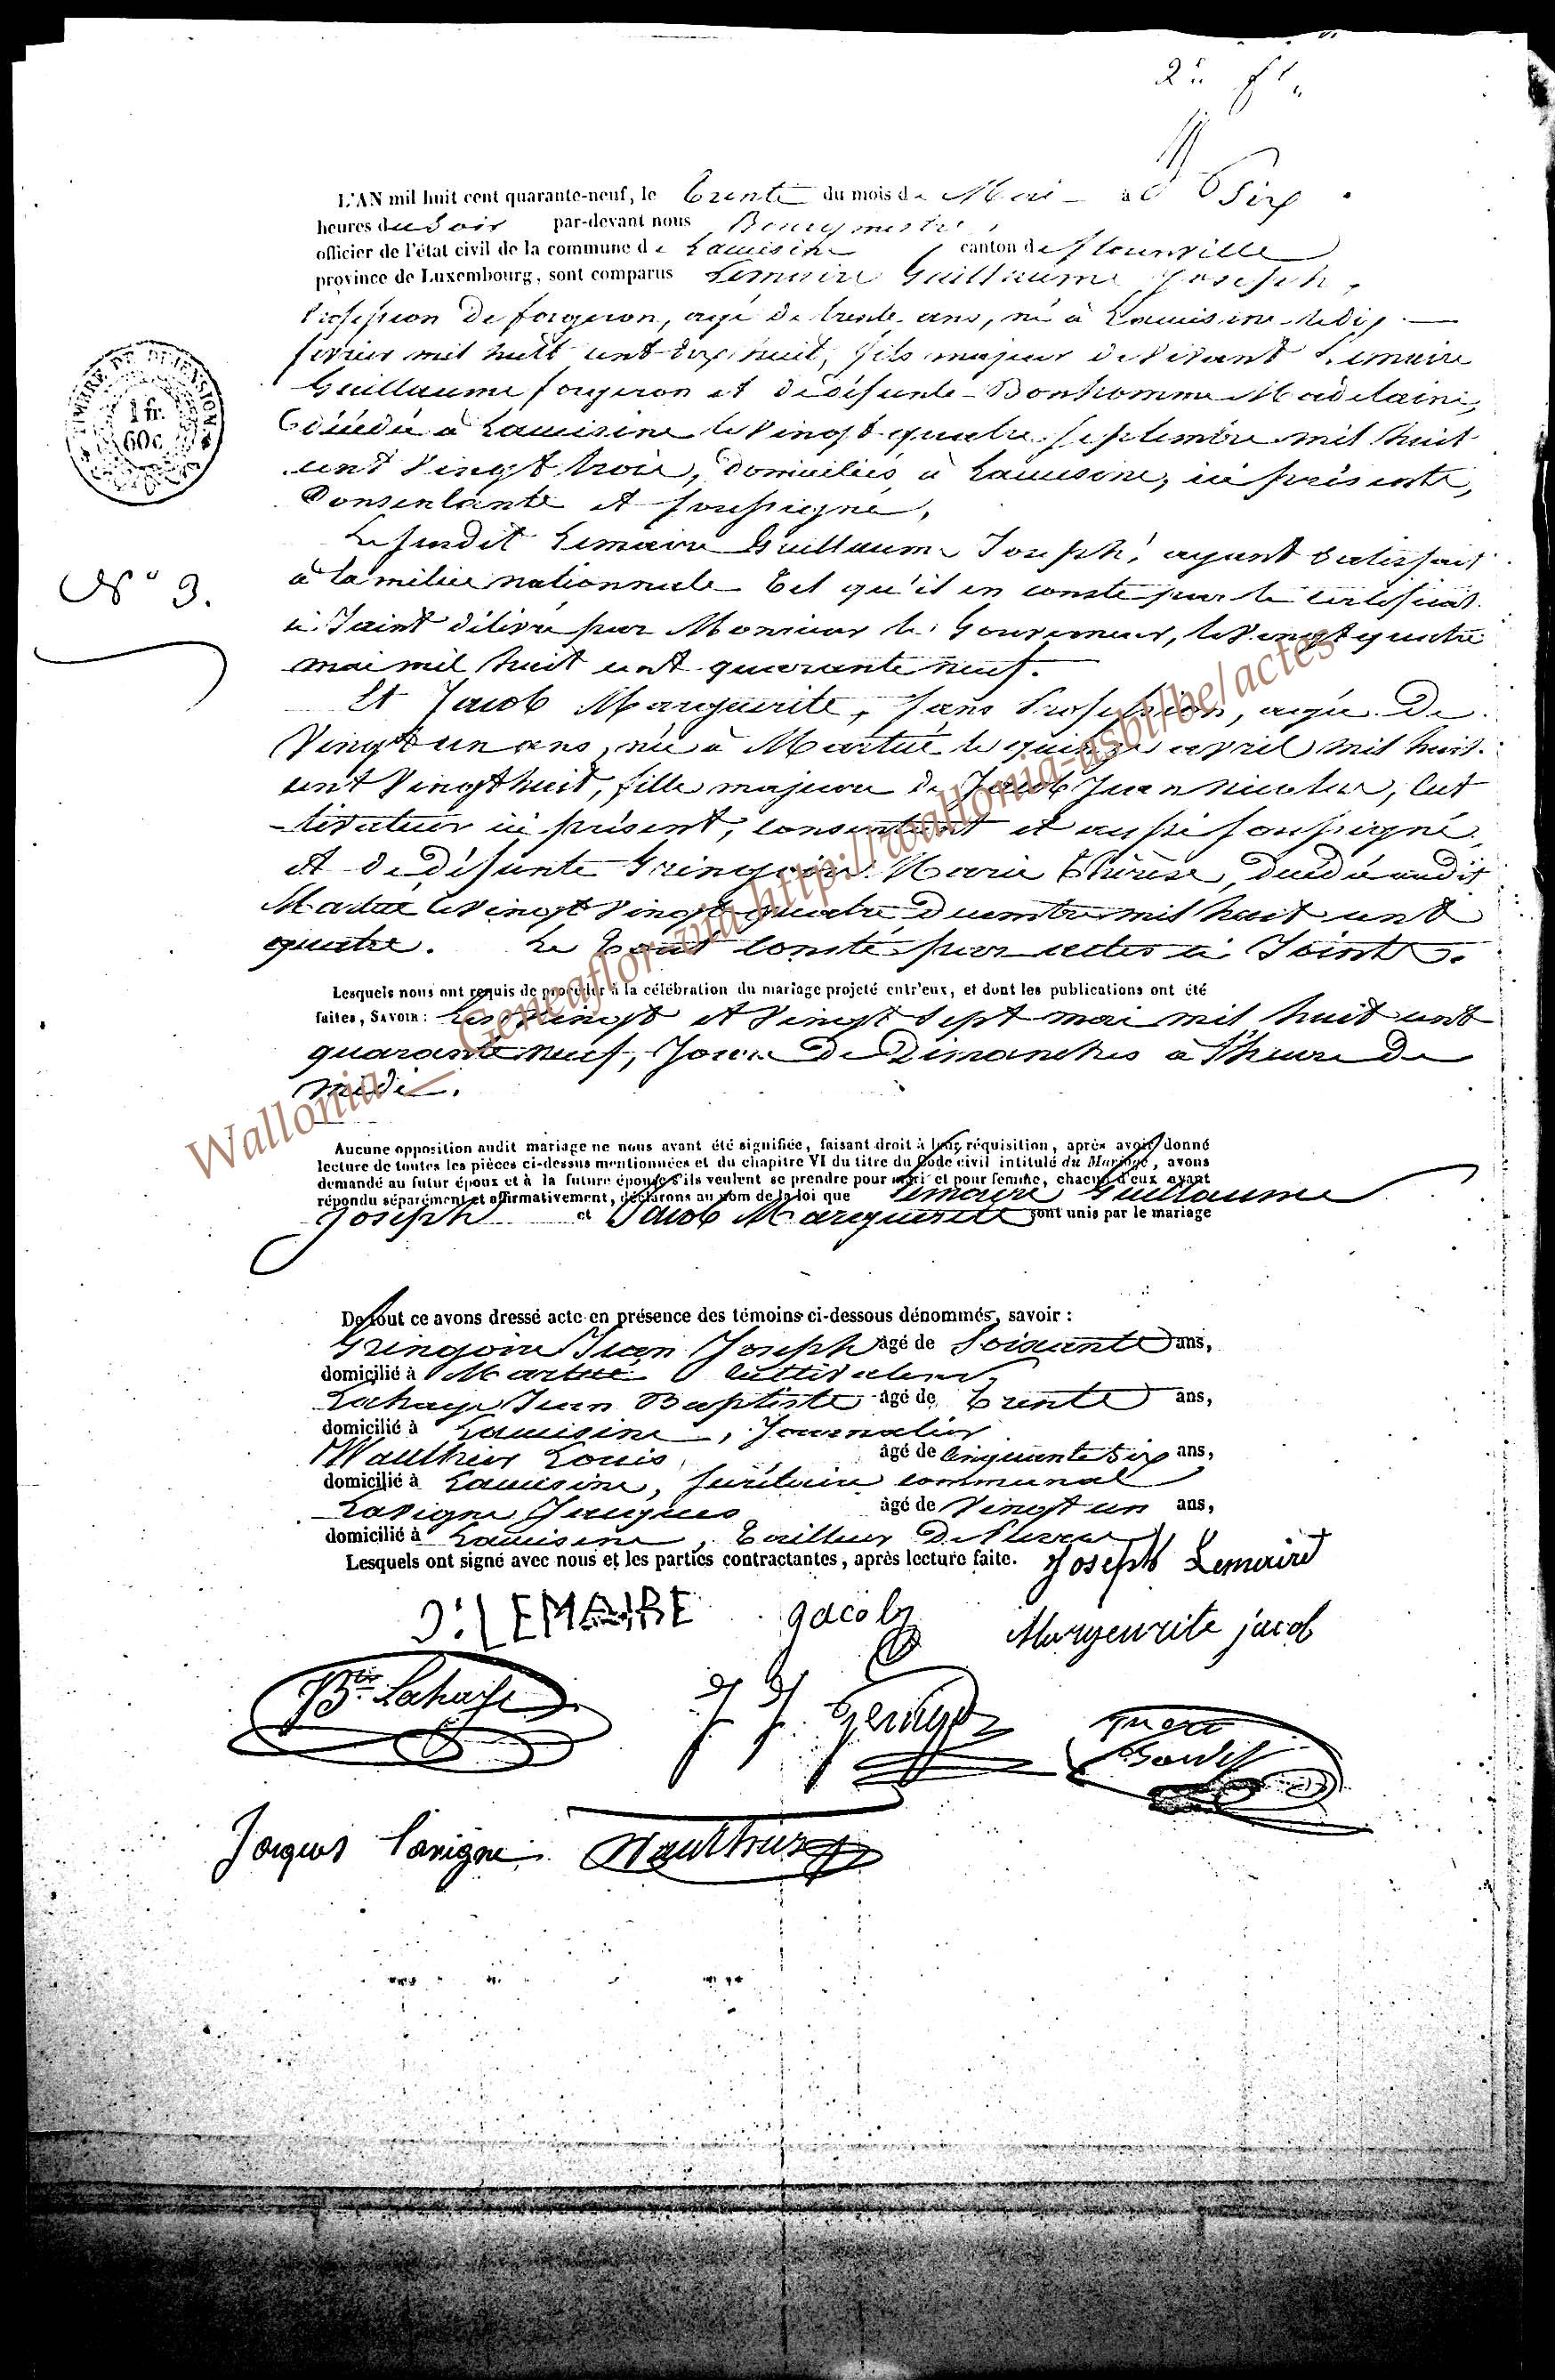 2e fle
L'AN mil huit cent quarante-neuf, le trente du mois de Mai à Six
heures du Soir par-devant nous Bourgmestre
officier de l'état civil de la commune de Lacuisine canton de florenville
province de Luxembourg, sont comparus Lemaire Guillaume Joseph,
Profession de forgeron, agé de trente ans, né à Lacuisine le dix
fevrier mil huit cent dix huit, fils majeur de vivant Lemaire
Guillaume forgeron et de défunte Bonhomme Madelaine,
décédée à Lacuisine le vingt quatre septembre mil huit
cent vingt trois, domiciliés à Lacuisine, ici présente,
Consentante et soussigné,
Le susdit Lemaire Guillaume Joseph, ayant satisfait
à la milice nationnale tel qu'il en conste par le certificat
ci Joint délivré par Monsieur le Gouverneur, le vingt quatre
mai mil huit cent quarante neuf.
N° 3.
TIMBRE DE DIMENSION
1 fr.
60c
Et Jacob Marguerite, sans Profession, agée de
Vingt un ans, née à Martué le quinze avril mil huit
cent Vingt huit, fille majeure de Jacob Jean nicolas, cul
-tivateur ici présent, consentant et aussi soussigné,
et de défunte Gringoire Marie thérèse, décédée audit
Martué le vingt Vingt quatre Decembre mil huit cent
quatre. Le tout consté par actes ci Joints.
Lesquels nous ont requis de procéder à la célébration du mariage projeté entr'eux, et dont les publications ont été
faites, SAVOIR : Les Vingt et Vingt Sept mai mil huit cent
quarante neuf, Jour de Dimanches à l'heure de
midi.
Aucune opposition audit mariage ne nous ayant été signifiée, faisant droit à leur réquisition, après avoir donné
lecture de toutes les pièces ci-dessus mentionnées et du chapitre VI du titre du Code civil intitulé du Mariage, avons
demandé au futur époux et à la future épouse s'ils veulent se prendre pour mari et pour femme, chacun d'eux ayant
répondu séparément et affirmativement, déclarons au nom de la loi que Lemaire Guillaume
Joseph et Jacob Marguerite sont unis par le mariage
De tout ce avons dressé acte en présence des témoins ci-dessous dénommés, savoir :
Gringoire Jean Joseph âgé de Soixante ans,
domicilié à Martué Cultivateur
Lahaye Jean Baptiste âgé de trente ans,
domicilié à Lacuisine, Journalier
Waulthier Louis, âgé de Cinquante Six ans,
domicilié à Lacuisine, secrétaire communal
Lavigne Jacques âgé de Vingt un ans,
domicilié à Lacuisine, tailleur De Pierre
Lesquels ont signé avec nous et les parties contractantes, après lecture faite. Joseph Lemaire
LEMAIRE gacob Margeurite jacob
Bte Lahaye J J Geringo
Jacques lavigne Waulthier
Wallonia _ Geneaflor via http://wallonia-asbl.be/actes